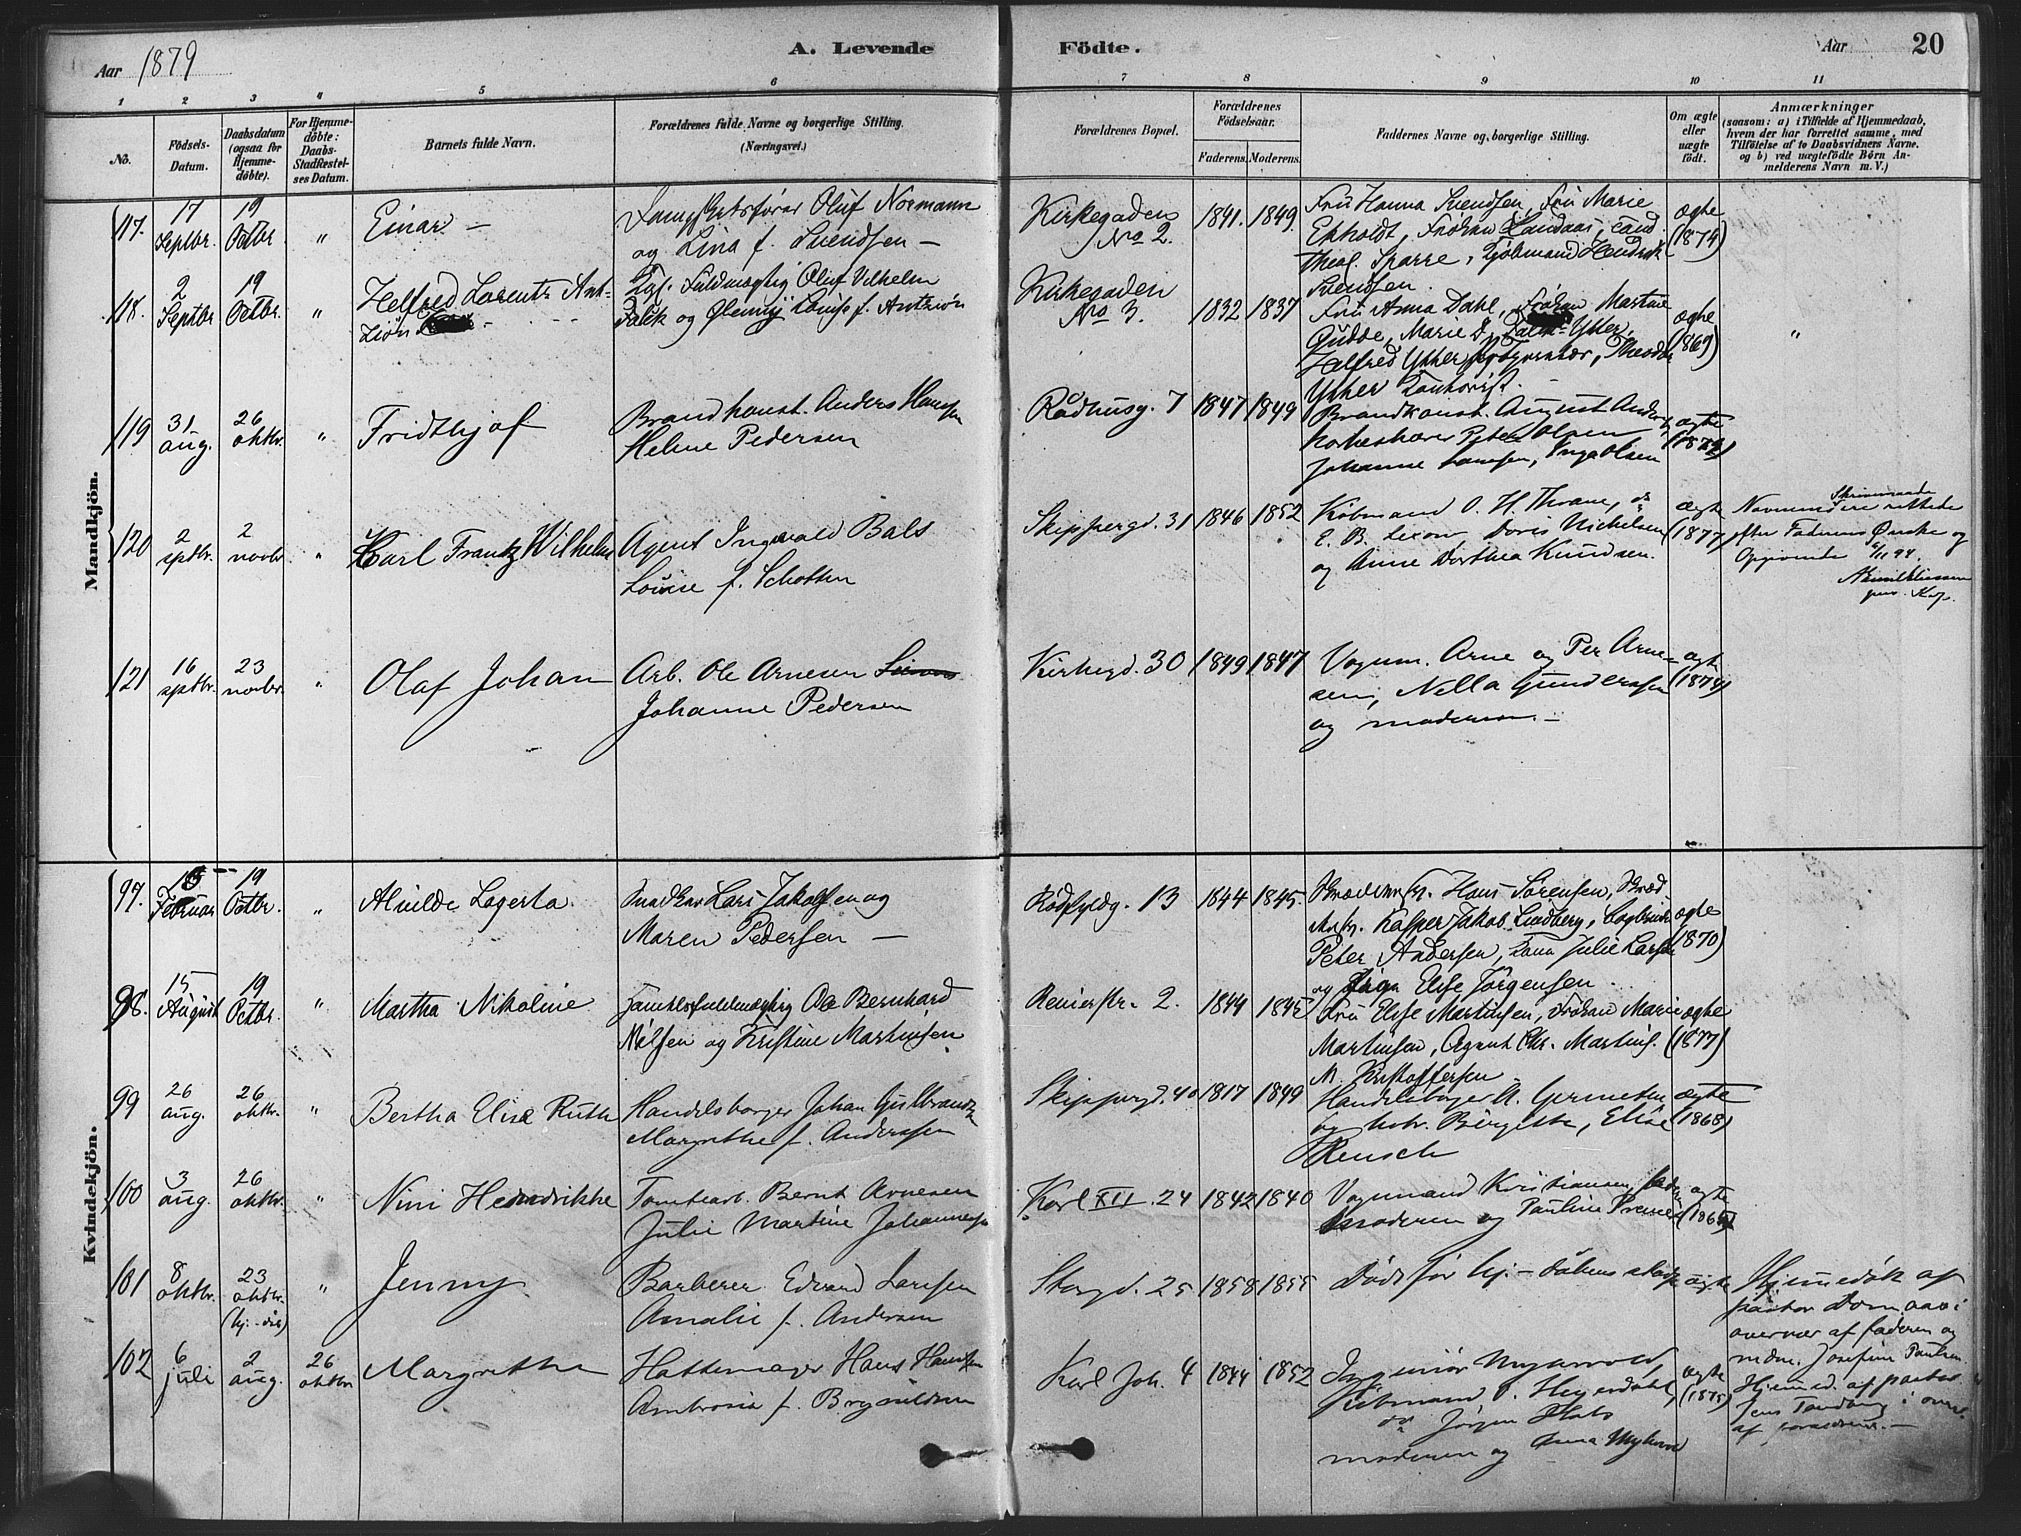 Aar 1879
A. Levende Födte.
Aar
20
1 2 3 4 5 6 7 8 9 10 11
No.
Födsels-
Datum.
Daabsdatum
(ogsaa for
Hjemme-
döbte).
For Hjemme-
döbte:
Daabs-
Stadfæstel-
ses Datum.
Barnets fulde Navn.
Forældrenes fulde Navne og borgerlige Stilling
(Næringsvei.)
Forældrenes Bopæl.
Forældrenes
Födselsaar.
Faderens. Moderens.
Faddernes Navne og borgerlige Stilling.
Om ægte
eller
uægte
født.
Anmærkninger
(saasom: a) i Tilfælde af Hjemmedaab,
hvem der har forrettet samme, med
Tilföielse af to Daabsvidners Navne.
og b) ved uægtefödte Börn An-
melderens Navn m. V.)
Mandkjön.
117. 17 Septbr. 19 Octbr. " Einar —
Oluf Normann
og Lina f. Svendsen —
Kirkegaden
No 2.
1841. 1849.
Fru Hanna Svendsen, Fru Marie
Ekholdt, Frøken Landaas, Cand.
Theol. Sparre, Kjøbmand Hendrik
Svendsen.
ægte
(1874)
118. 2 Septbr 19 Octbr. " Helfred Lorentz Ant-
zion
Fuldmægtig Oluf Vilhelm
Falk og Jenny Louise f. Antzion
Kirkegaden
No 3.
1832 1837
Fru Anna Dahl, Frøken Martine
Gudde, Marie D. Falk-Ytter,
Helfred Ytter, Theodor
Ytter
ægte
(1869)
"
119 31 aug. 26 oktbr. " Fridthjof
Brandkonst. Anders Hansen
Helene Pedersen
Rådhusg. 7
1847 1849
Brandkonst. August Anders
Peter Olsen
Johanne Hansen, Inga Olsen
ægte
120 2 sptbr. 2 novbr. " Carl Frantz Wilhelm
Agent Ingvald Bals
Louise f. Schotten
Skippergd. 31
1846 1852
Købmand O. H. Thrane, do
E. B. Lexow Doris Nichelsen
og Anne Dorthea Knudsen.
ægte
(1877)
Skrivemaade
Navnene rettede
efter Faderens Ønske og
Opgivende
121 16 sptbr. 23 novbr. " Olaf Johan
Arb. Ole Arnesen
Johanne Pedersen
Kirkegd. 30
1849 1847
Vognm. Arne og Per Arne-
sen, Nella Gundersen
og moderen. —
ægte
(1874)
Kvindekjön.
97. Februar 19 Octbr. " Alvilde Lagerta.
Snedker Lars Jakobsen og
Maren Pedersen —
Rødfyldg. 13
1844 1845.
Hans Sørensen, Skræd
Kasper Jakob Lindberg, Bogbinder
Peter Andersen, Julie Larsen
og Elise Jørgensen
ægte
(1870)
98. 15 August 19 Octbr. " Martha Nikoline
Handelsfuldmægtig Ole Bernhard
Nilsen og Kristine Martinsen
Renierstr. 2.
1844 1845
Fru Elise Martinsen, Frøken Marie
Martinsen, Agent Chr. Martins.
M. Kristoffersen
ægte
(1877)
99 26 aug. 26 oktbr. " Bertha Elise Ruth
Handelsborger Johan Gulbrandsen
Margrethe f. Anderssen
Skippergd. 40
1817 1849
Handelsborger A.
og hstr. Birgitte, Elise
Rensch
ægte
(1868)
100 3 aug. 26 oktbr. " Nini Hendrikke
Tomtearb. Bernt Arnesen
Julie Martine Johannesen
Karl XII. 24
1842 1840
Vognmand Kristiansen,
Moderen og Pauline
ægte
101 8 oktbr. 23 oktbr. (hj. - døb) " Jenny
Barberer Edvard Larsen
Amalie f. Andersen
Storgd. 25
1858 1855
Død før hj. - dåbens stadf.
ægte
Hjemmedøbt af
pastor
overvær af faderen og
mdm. Josefine Paulsen
102 6 juli 2 aug. 26 oktbr. Margrethe
Hattemager Hans Hansen
Ambrosia f. Brynildsen
Karl Joh. 4
1844 1852
Ingeniør Myhrvold,
Købmand O. Heyerdahl,
do Jørgen
moderen og Anna
ægte
(1875)
Hjemmed. af pastor
Jens Tandberg i overv.
af forældrene. —